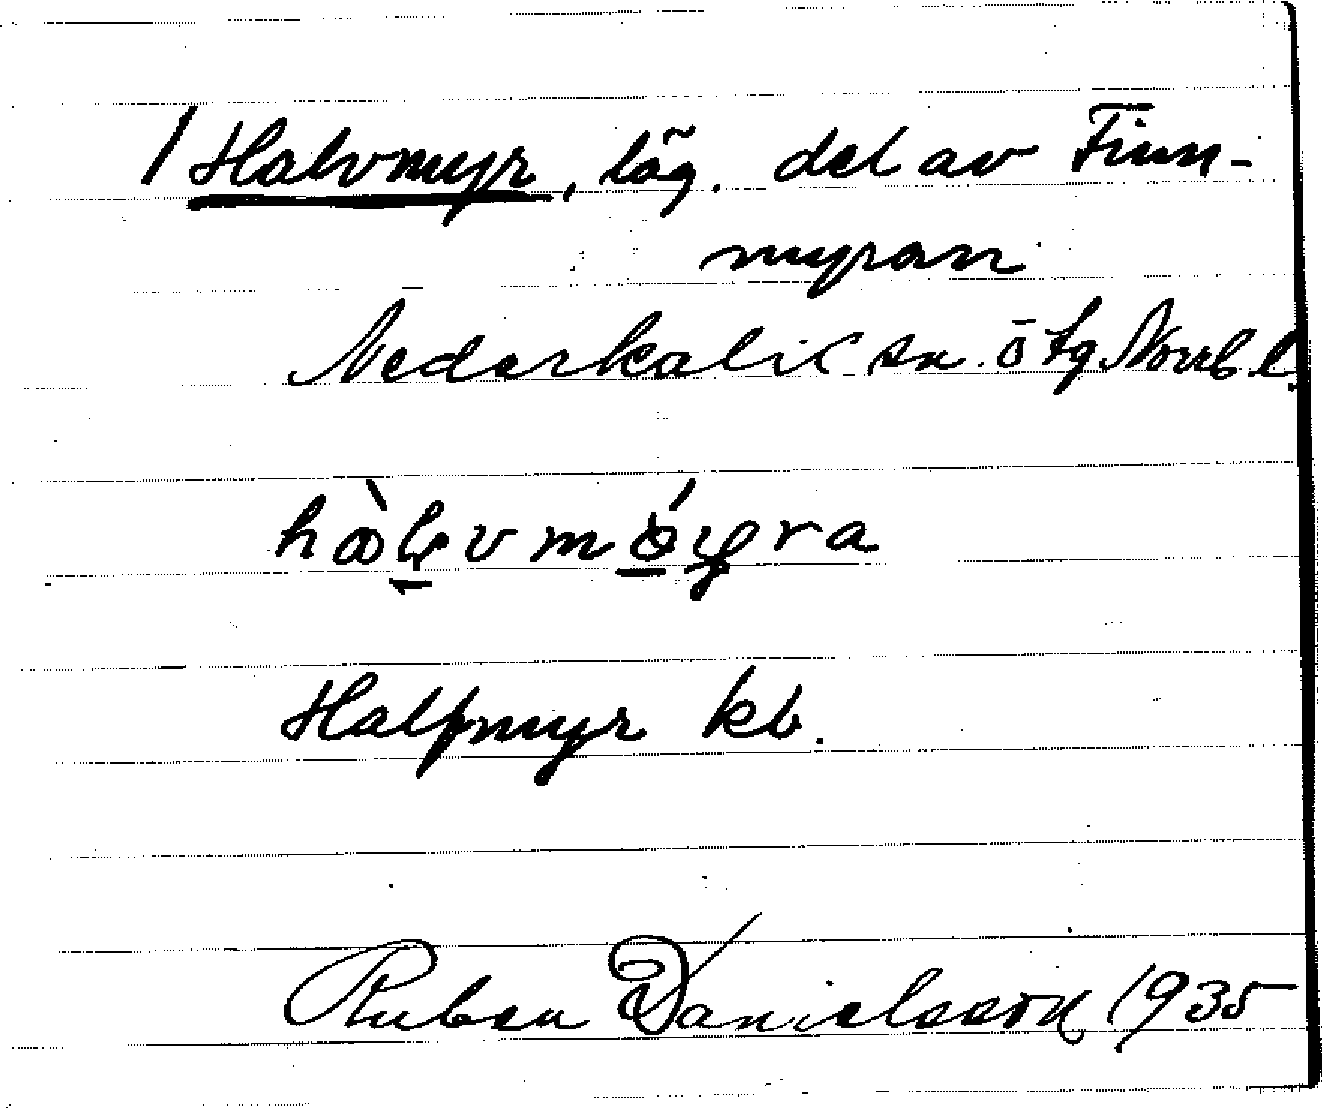 / Halvmyr, läg. del av Finn-
myran
Nederkalix sn. ö tg Norrb. l.
Halfmyr kb.
Ruben Danielsson 1935